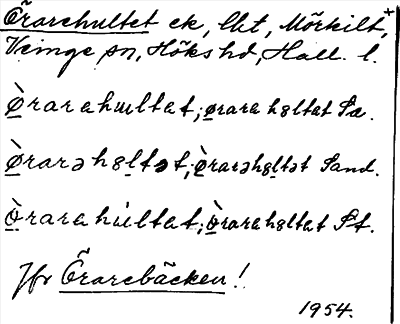 Örarehultet ek, lht, Mörkilt,+
Veinge sn, Höks hd, Hall. l.
ø̀rarahɯltat; ørara hɞltat Sæ.
ø̀rarəhɞltət; ø̀rarəhɞltət Sand.
ö̀rarahúltat; ö̀rarahɞltat St.
Jfr Örarebäcken!
1954.